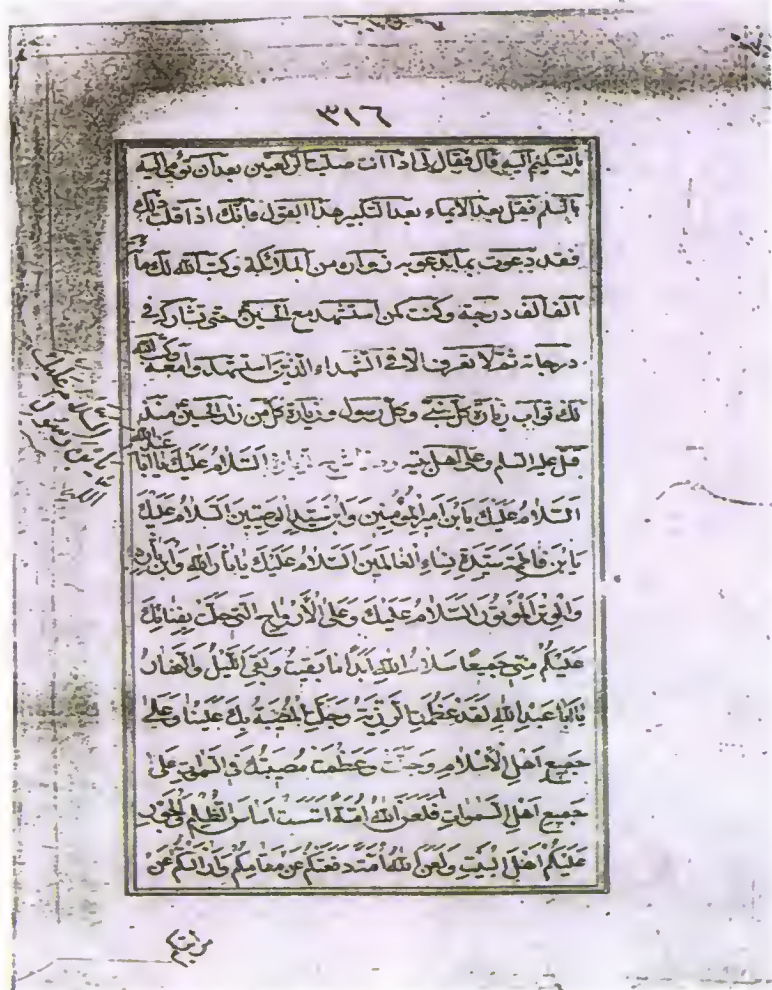 ٣١٦
بالتسليم اليه قال فقال لى اذا انت صليت الركعتين بعد ان تومى اليه
بالسلم فقل بعد الايماء بعد التكبير هذا القول فانك اذا قلت ذلك
فقد دعوت بما يدعو به زواره من الملائكة وكتب الله لك مأة
الف الف درجة وكنت كمن استشهد مع الحسين حتى تشاركه فى
درجاته ثم لا تعرف الا فى الشهداء الذين استشهدوا معه وكتب الله
لك ثواب زيارة كل نبى وكل رسول وزيارة كل من زار الحسين منذ
قتل عليه السلم وعلى اهل بيته اَلسَّلامُ عَلَيْكَ يا اَبا عبد الله
اَلسَّلامُ عَلَيْكَ يَابْنَ رسول الله
اَلسَّلامُ عَلَيْكَ يَابْنَ اَميرِ الْمُؤْمِنينَ وَابْنَ سَيِّدِ الْوَصِيّينَ اَلسَّلامُ عَلَيْكَ
يَابْنَ فاطِمَةَ سَيِّدَةِ نِساءِ الْعالَمينَ اَلسَّلامُ عَلَيْكَ يا ثارَ اللهِ وَابْنَ ثارِهِ
وَالْوِتْرَ الْمَوْتُورَ اَلسَّلامُ عَلَيْكَ وَعَلَى الْاَرْواحِ الَّتى حَلَّتْ بِفِنائِكَ
عَلَيْكُمْ مِنّى جَميعًا سَلامُ اللهِ اَبَدًا ما بَقيتُ وَبَقِىَ اللَّيْلُ وَالنَّهارُ
يا اَبا عَبْدِ اللهِ لَقَدْ عَظُمَتِ الرَّزِيَّةُ وَجَلَّتِ الْمُصيبَةُ بِكَ عَلَيْنا وَعَلى
جَميعِ اَهْلِ الْاِسْلامِ وَجَلَّتْ وَعَظُمَتْ مُصيبَتُكَ فِى السَّمواتِ عَلى
جَميعِ اَهْلِ السَّمواتِ فَلَعَنَ اللهُ اُمَّةً اَسَّسَتْ اَساسَ الظُّلْمِ وَالْجَوْرِ
عَلَيْكُمْ اَهْلَ الْبَيْتِ وَلَعَنَ اللهُ اُمَّةً دَفَعَتْكُمْ عَنْ مَقامِكُمْ وَاَزالَتْكُمْ عَنْ
مراتبكم